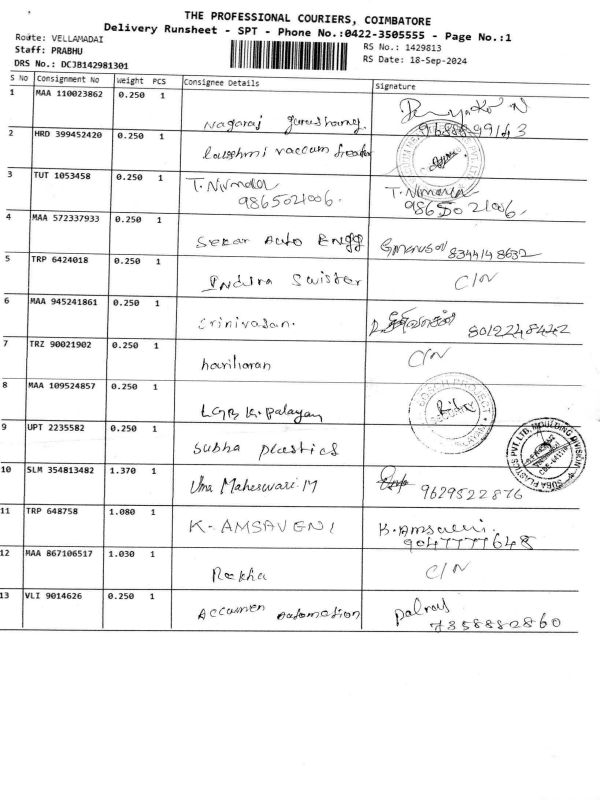 THE PROFESSIONAL COURIERS, COIMBATORE
Delivery Runsheet - SPT - Phone No.:0422-3505555 - Page No.:1
Route: VELLAMADAI
RS No.: 1429813
Staff: PRABHU
RS Date: 18-Sep-2024
DRS No.: DCJB142981301
S No Consignment No Weight PCS Consignee Details Signature
1 MAA 110023862 0.250 1 Nagaraj
2 HRD 399452420 0.250 1
3 TUT 1053458 0.250 1 T. Nirmala T. Nirmala
9865021006. 9865021006.
4 MAA 572337933 0.250 1 Sekar Auto Engg 8344148632
5 TRP 6424018 0.250 1 Indira C/N
6 MAA 945241861 0.250 1 Srinivasan. 8012248422
7 TRZ 90021902 0.250 1 hariharan C/N
8 MAA 109524857 0.250 1 LGB K. Palayam
BOSCH PROJECT
SECURITY
9 UPT 2235582 0.250 1 Subha plastics
SUBA PLASTICS PVT. LTD. MOULDING DIVISION
10 SLM 354813482 1.370 1 Uma Maheswari. M 9629522876
11 TRP 648758 1.080 1 K- AMSAVENI K. Amsaveni.
9047777648
12 MAA B67106517 1.030 1 Rekha C/N
13 VLI 9014626 0.250 1 Accumen Automation Palraj
7358882860